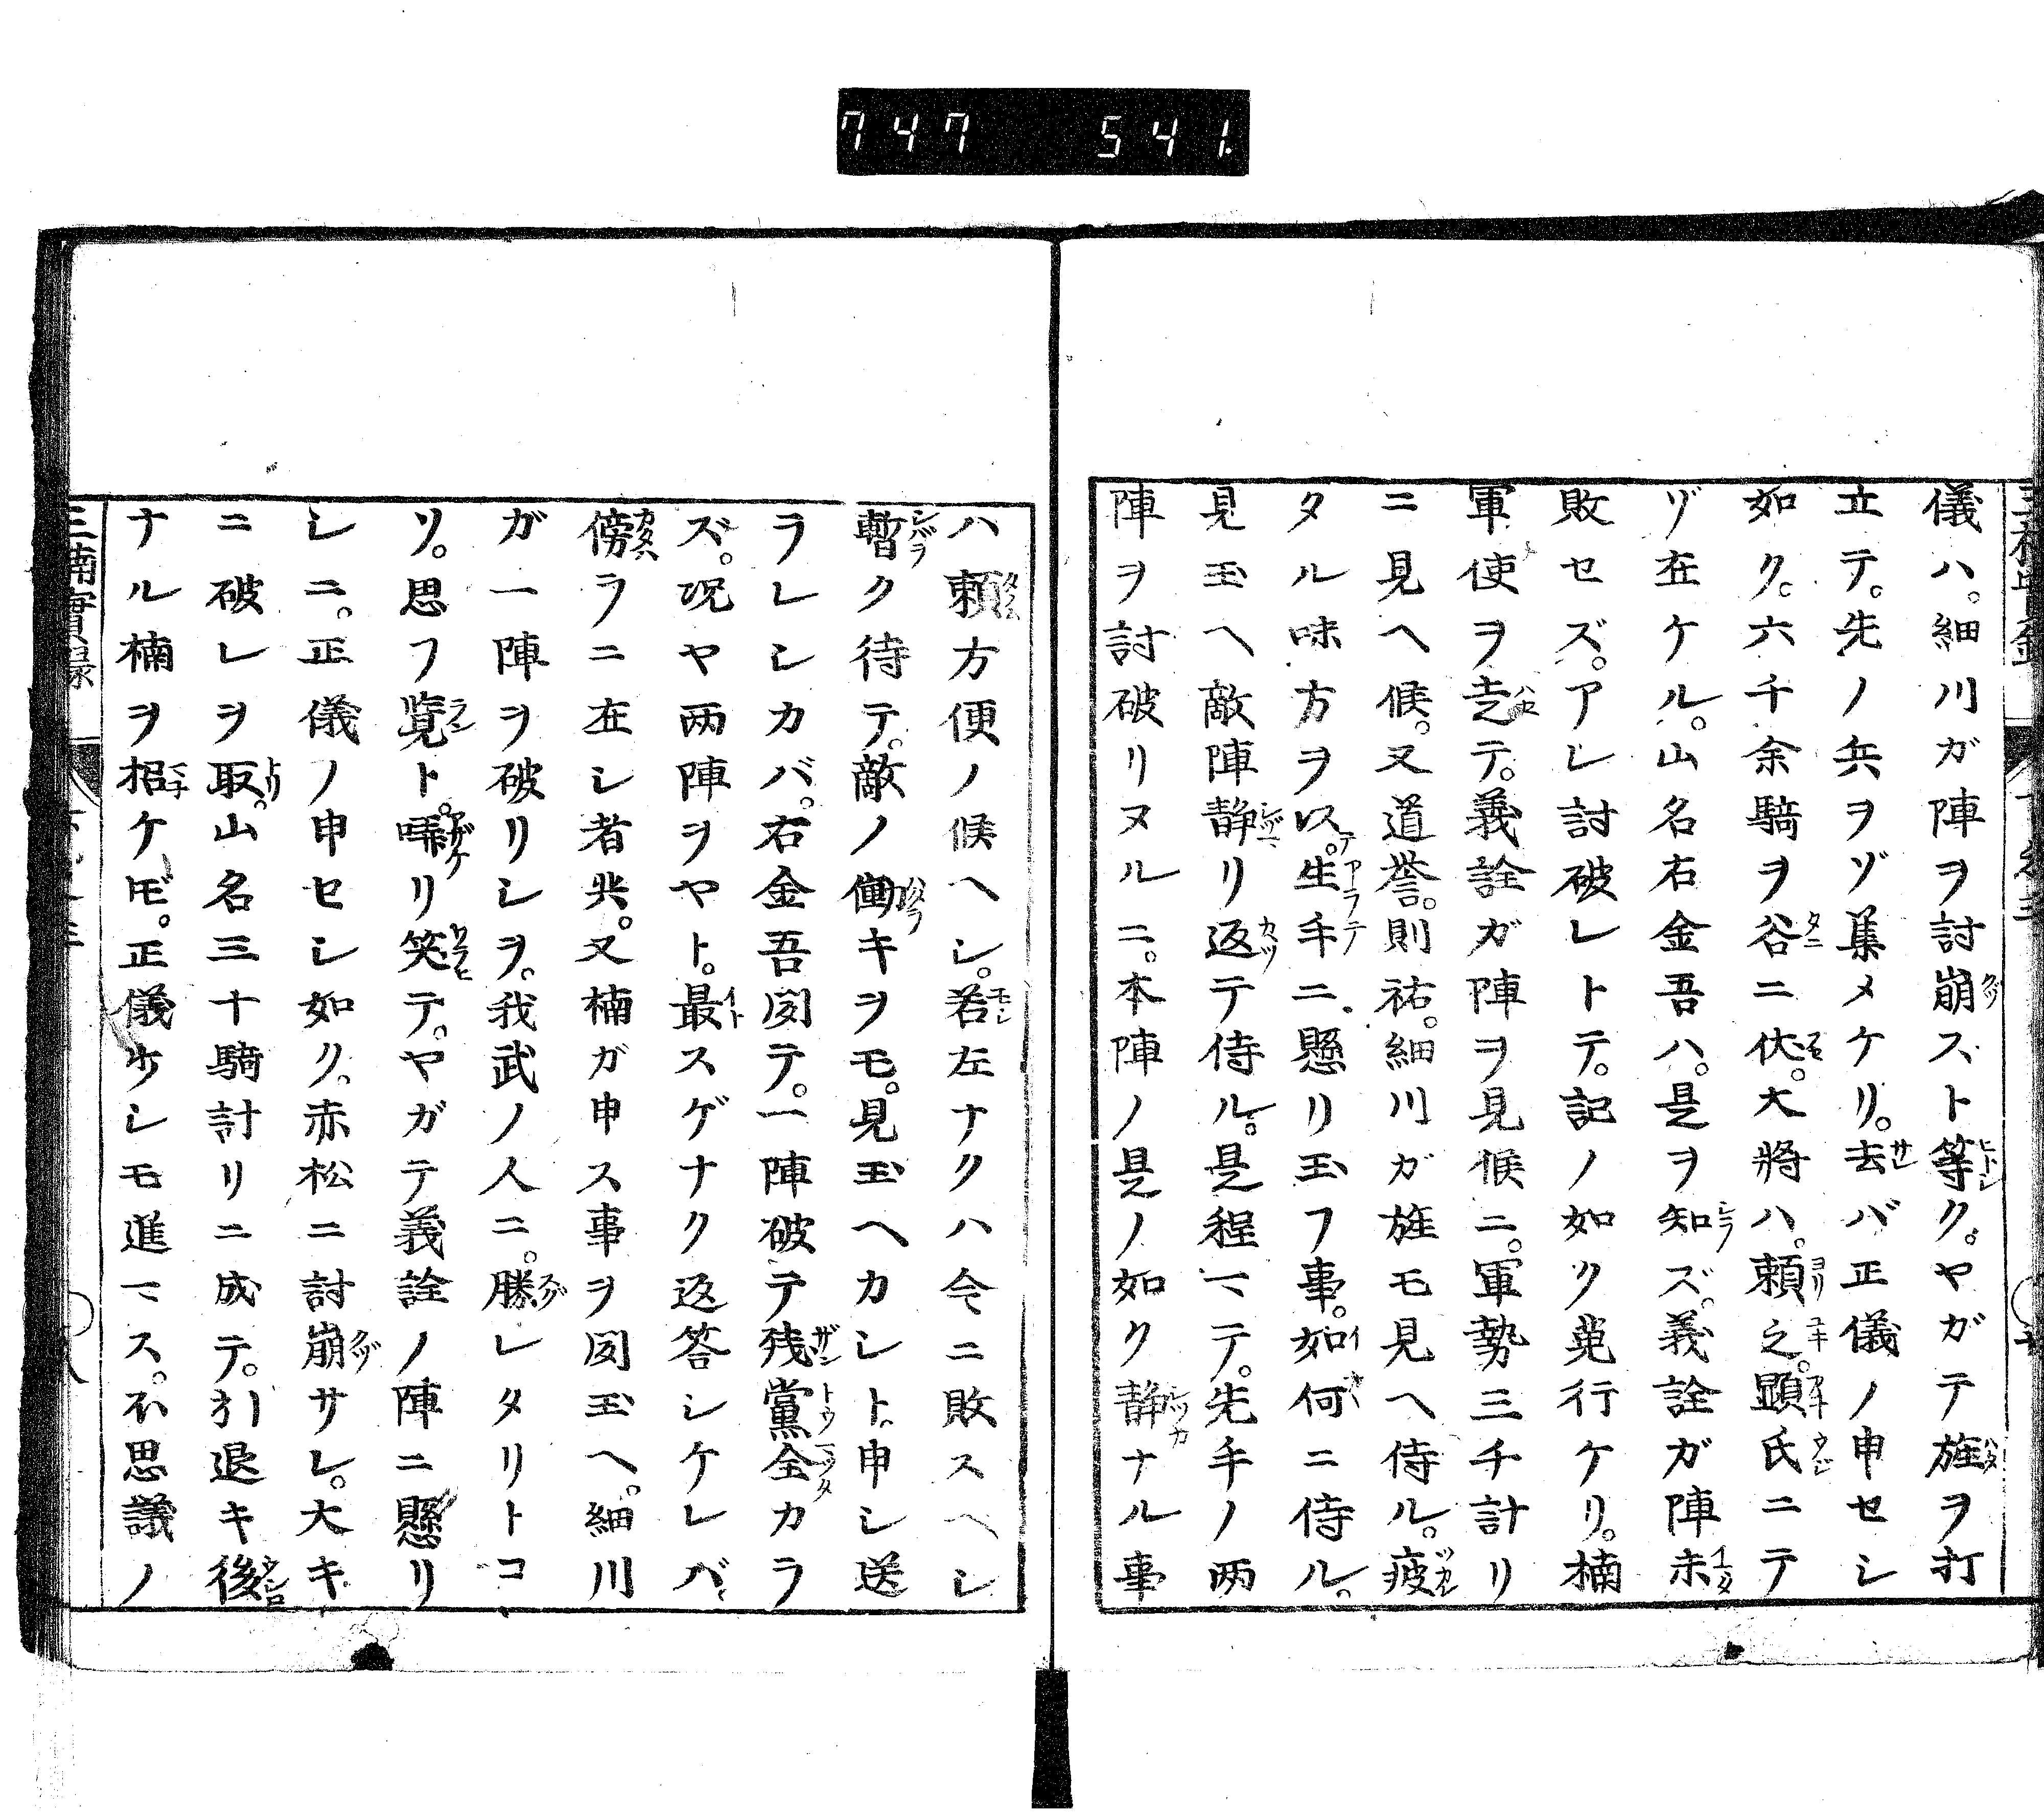 747 541.
儀ハ。細川ガ陣ヲ討崩スト等ク。ヤガテ旌ヲ打
立テ。先ノ兵ヲゾ集メケリ。去バ正儀ノ申セシ
如ク。六千余騎ヲ谷ニ伏。大將ハ。頼之。顕氏ニテ
ゾ在ケル。山名右金吾ハ。是ヲ知ズ。義詮ガ陣未
敗セズ。アレ討破レトテ。記ノ如ク
軍使ヲ走テ。義詮ガ陣ヲ見候ニ。軍勢三千計リ
ニ見ヘ候。又道誉。則祐。細川ガ旌モ見ヘ侍ル。疲
タル味方ヲ以。生手ニ懸リ玉フ事。如何ニ侍ル。
見玉ヘ敵陣静リ返テ侍ル。是程マテ。先手ノ两
陣ヲ討破リヌルニ。本陣ノ是ノ如ク静ナル事
ハ頼方便ノ候ヘシ。若左ナクハ今ニ敗スヘシ
暫ク待テ。敵ノ働キヲモ。見玉ヘカシト申シ送
ラレシカバ。右金吾聞テ。一陣破テ残黨全カラ
ズ。况ヤ两陣ヲヤト。最スゲナク返答シケレバ
傍ラニ在シ者共。又楠ガ申ス事ヲ聞玉ヘ。細川
ガ一陣ヲ破リシヲ。我武ノ人ニ。勝レタリトコ
ソ。思フ覧ト。リ笑テ。ヤガテ義詮ノ陣ニ懸リ
シニ。正儀ノ申セシ如ク。赤松ニ討崩サレ。大キ
ニ破レヲ取。山名三十騎計リニ成テ。引退キ後
ナル楠ヲ招ケ𪜈。正儀ケシモ進マス。不思議ノ
三楠實録